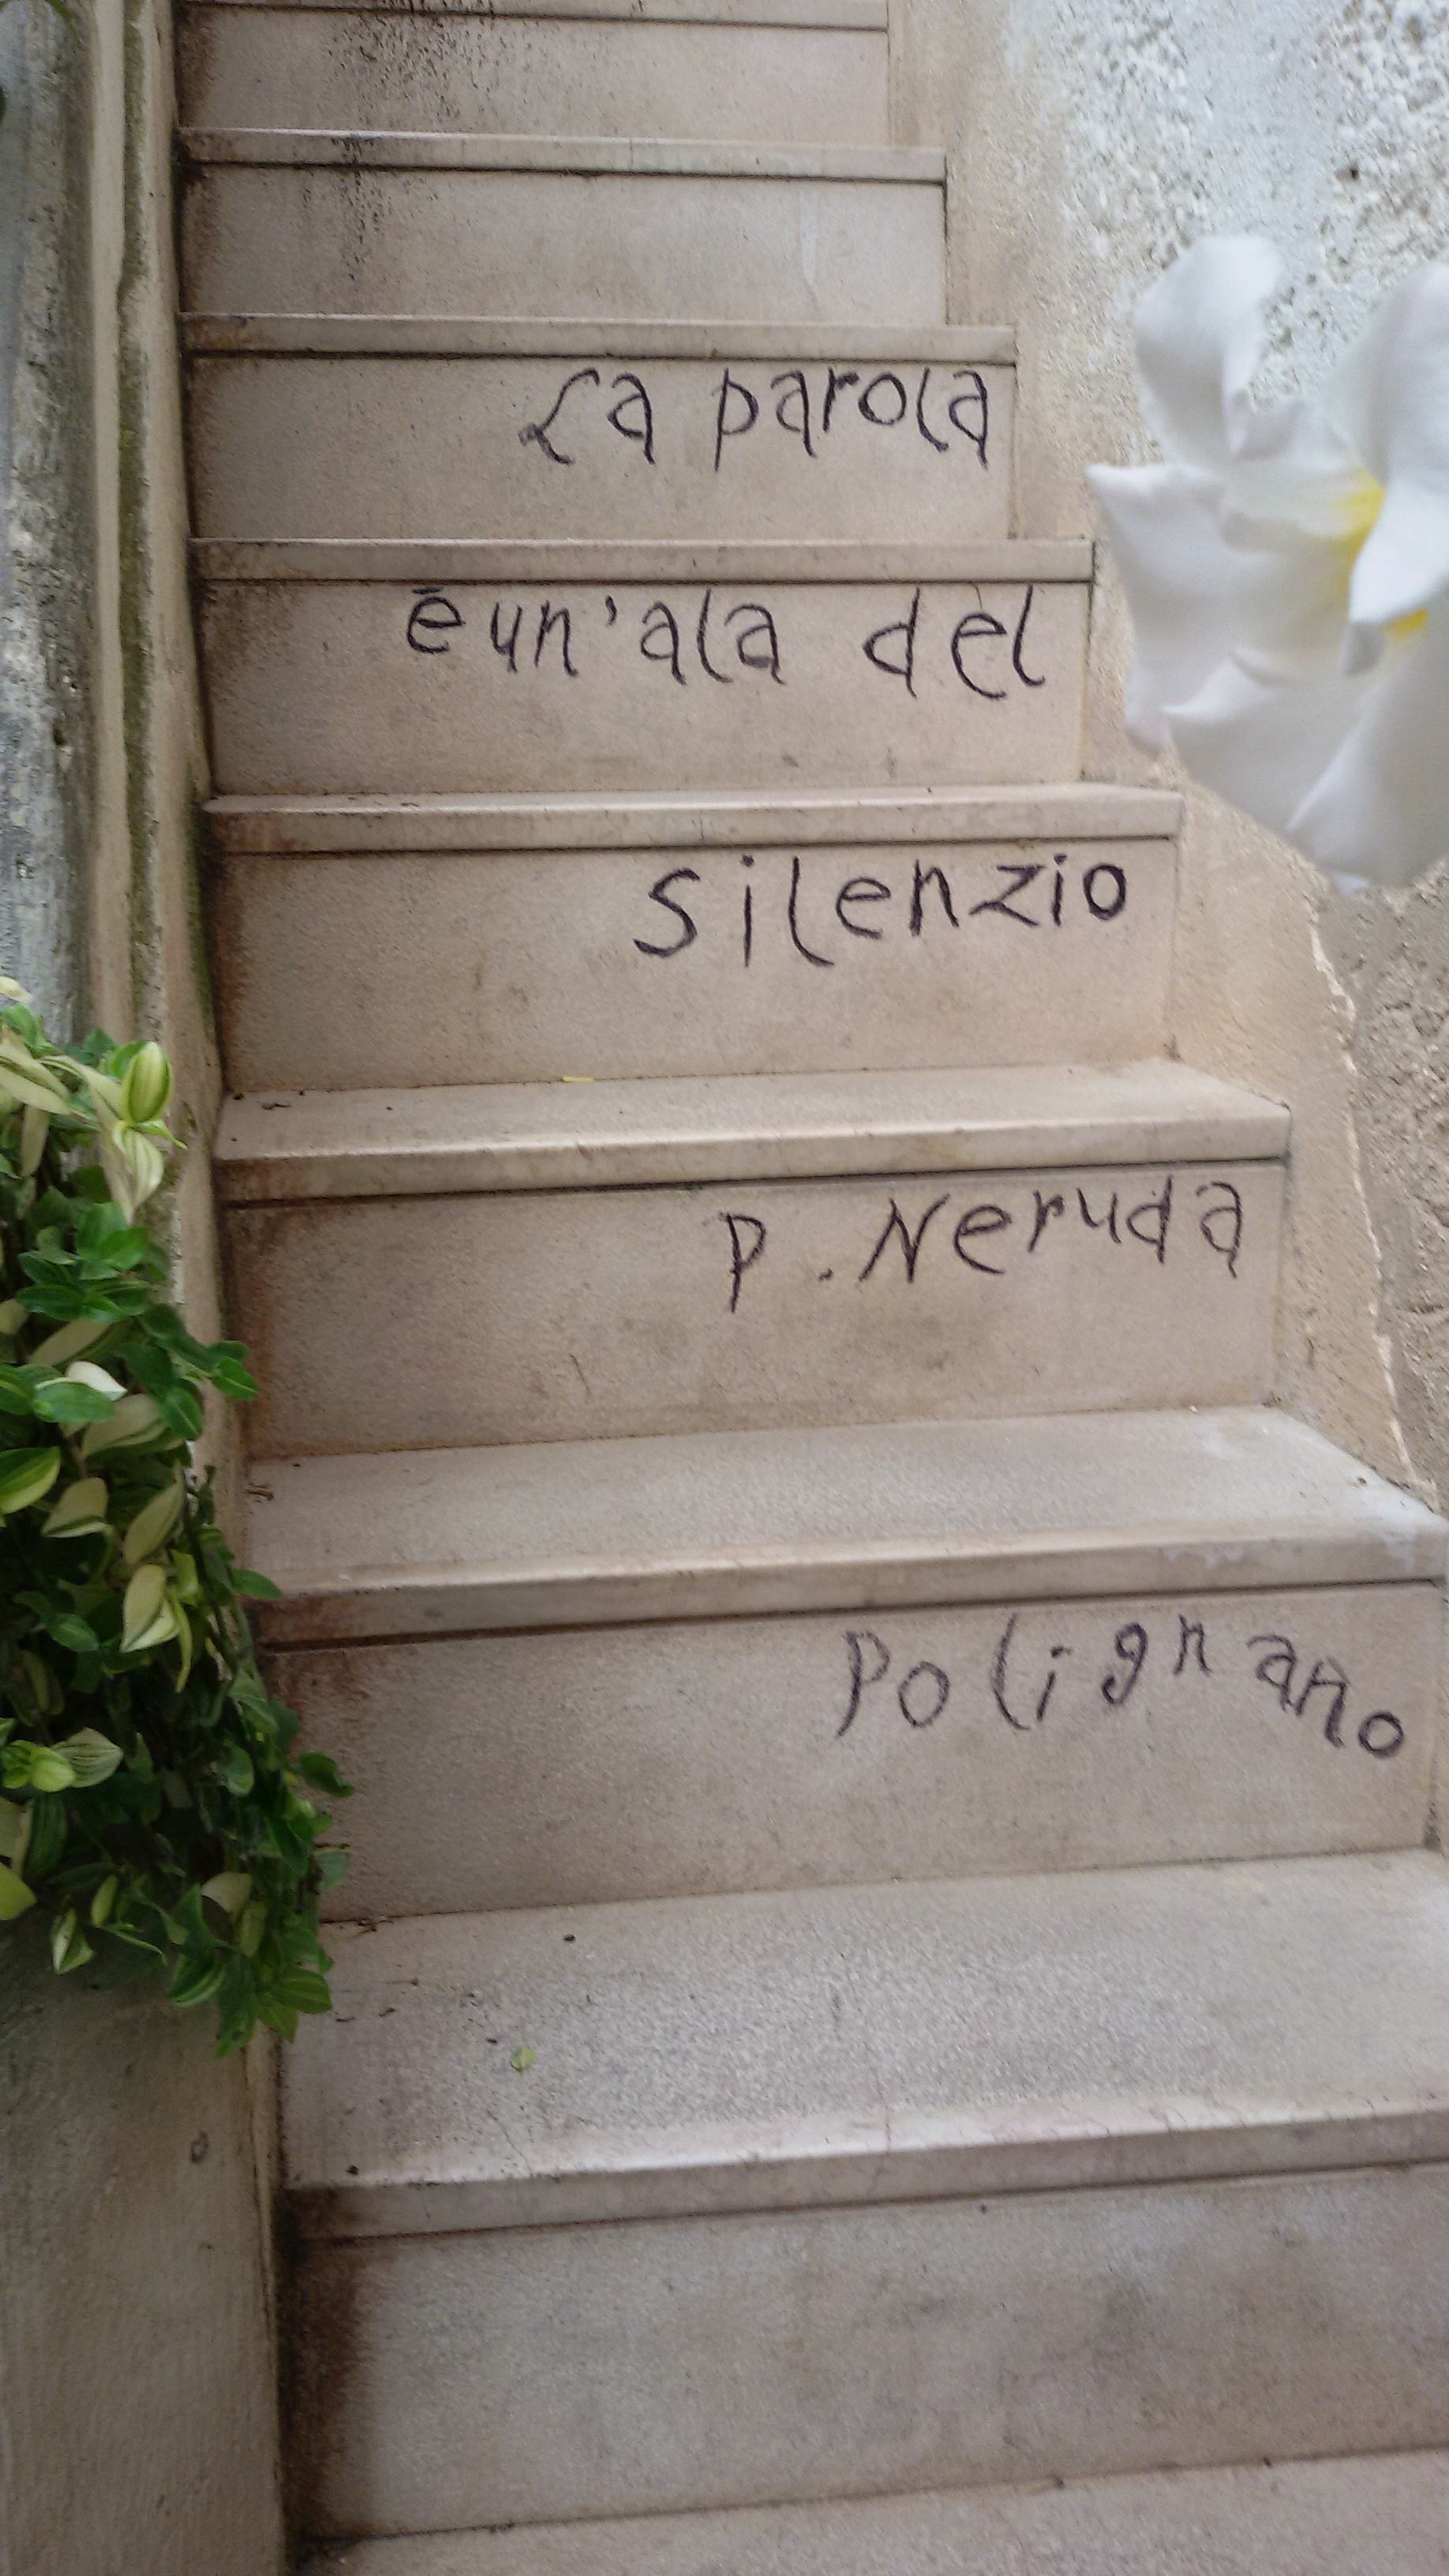 La parola
è un'ala del
silenzio
P. Neruda
Polignano